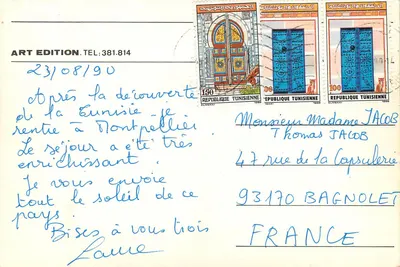 ART EDITION. TEL; 381.814
23/08/90
Après la découverte
de la Tunisie je
rentre à Montpellier
Le séjour a été très
enrichissant.
Je vous envoie
tout le soleil de ce
pays.
Bises à vous trois
REPUBLIQUE TUNISIENNE
REPUBLIQUE TUNISIENNE
REPUBLIQUE TUNISIENNE
Monsieur Madame JACOB
Thomas JACOB
47 rue de la Capsulerie
93170 BAGNOLET
FRANCE